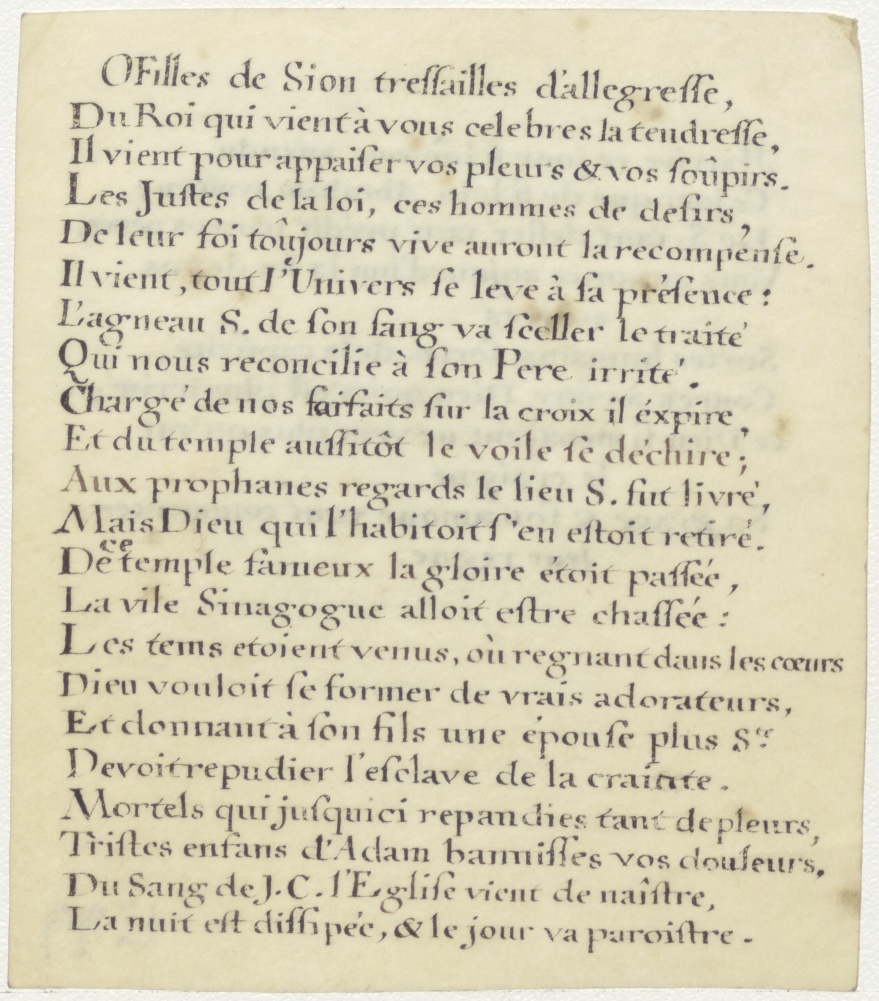 O Filles de Sion tressailles d'allegresse,
Du Roi qui vient à vous celebres la tendresse,
Il vient pour appaiser vos pleurs & vos soûpirs.
Les Justes de la loi, ces hommes de desirs,
De leur foi toûjours vive auront la recompense.
Il vient, tout l'Univers se leve à sa présence :
L'agneau S. de son sang va sceller le traité
Qui nous reconcilie à son Pere irrité.
Chargé de nos forfaits sur la croix il éxpire,
Et du temple aussitôt le voile se déchire ;
Aux prophanes regards le lieu S. fut livré,
Mais Dieu qui l'habitoit s'en estoit retiré.
De ce temple fameux la gloire étoit passée,
La vile Sinagogue alloit estre chassée :
Les tems etoient venus, où regnant dans les cœurs
Dieu vouloit se former de vrais adorateurs,
Et donnant à son fils une épouse plus Ste
Devoit repudier l'esclave de la crainte.
Mortels qui jusqu'ici repandies tant de pleurs,
Tristes enfans d'Adam bannisses vos douleurs,
Du Sang de J.C. l'Eglise vient de naîstre,
La nuit est dissipée, & le jour va paroistre.